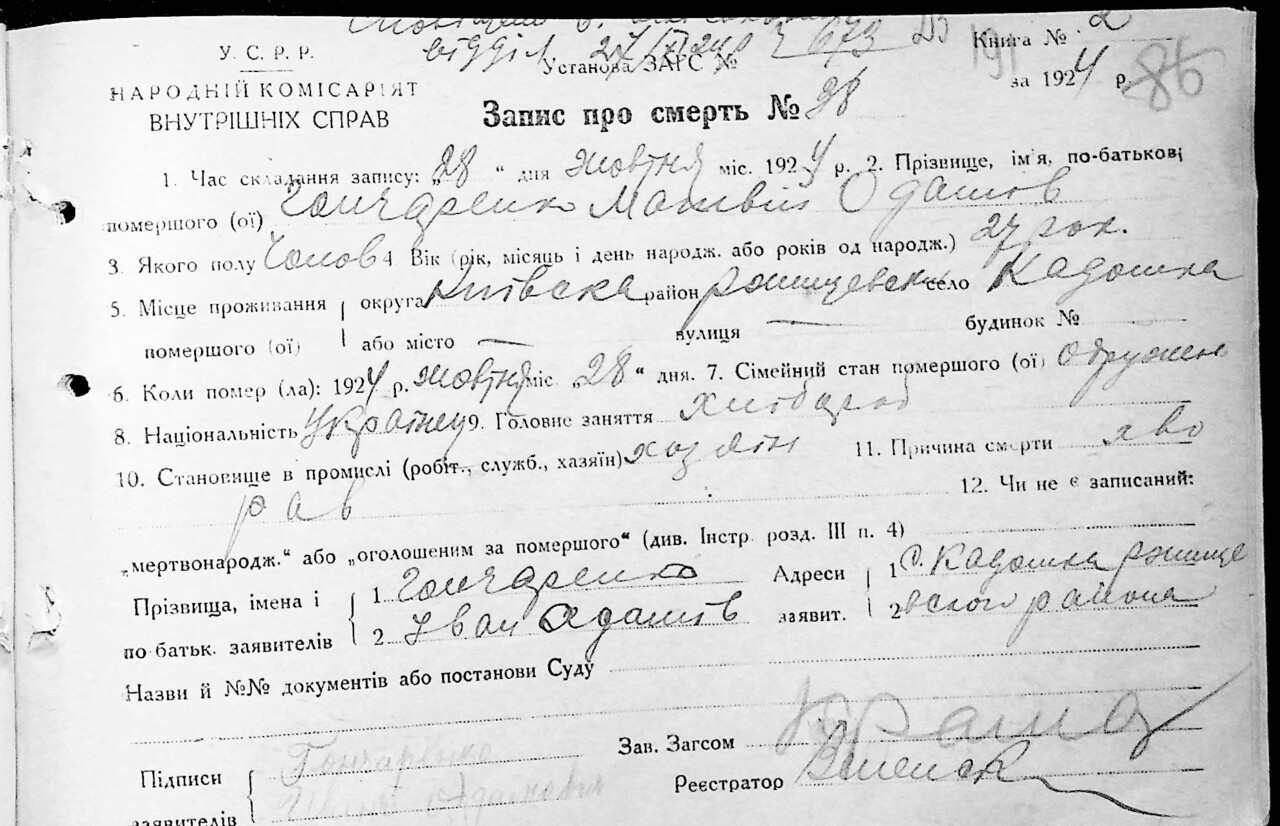 відділ 27/XI 24 р № 673
У. С. Р. Р. Установа ЗАГС № Книга № 2
191
НАРОДНІЙ КОМІСАРІЯТ за 1924 р. 86
ВНУТРІШНІХ СПРАВ Запис про смерть № 28
1. Час складання запису: „28“ дня жовтня міс. 1924 р. 2. Прізвище, ім'я, по-батькові
помершого (ої) Гончаренко Матвій Одамов
3. Якого полу Чолов 4. Вік (рік, місяць і день народж. або років од народж.) 27 рок.
5. Місце проживання округа Київска район ржищевск село Кадошка
помершого (ої) або місто — вулиця — будинок №
6. Коли помер (ла): 1924 р. жовтня міс. „28“ дня. 7. Сімейний стан помершого (ої) одружен
8. Національність Українец 9. Головне заняття хлибороб
10. Становище в промислі (робіт., служб., хазяїн) хозяін 11. Причина смерти
12. Чи не є записаний:
„мертвонародж.“ або „оголошеним за помершого“ (див. Інстр. розд. III п. 4)
Прізвища, імена і 1 Гончаренко Адреси 1 с. Кадошка ржище
по батьк. заявителів 2 Іван Адамів заявит. 2 вского района
Назви й №№ документів або постанови Суду
Зав. Загсом
Підписи Гончаренко Реєстратор
заявителів Іван Адамович